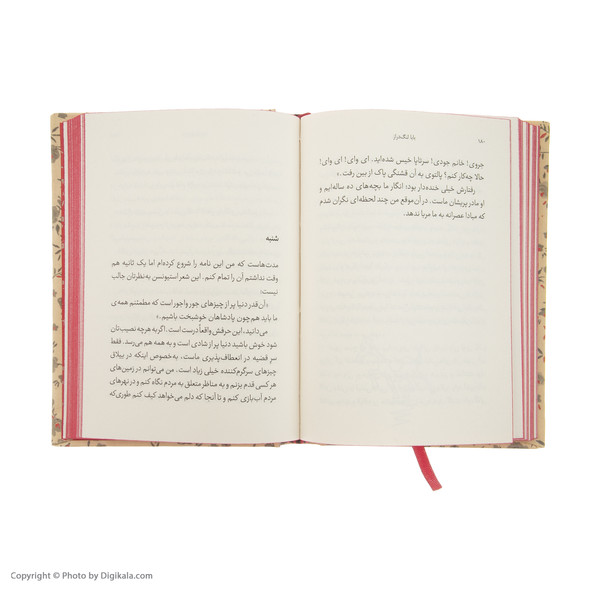 ۱۸۰
بابا لنگ‌دراز
جروی! خانم جودی! سرتاپا خیس شده‌اید. ای وای! ای وای!
حالا چه‌کار کنم؟ پالتوی به آن قشنگی پاک از بین رفت.»
رفتارش خیلی خنده‌دار بود؛ انگار ما بچه‌های ده ساله‌ایم و
او مادر پریشان ماست. در آن‌موقع من چند لحظه‌ای نگران شدم
که مبادا عصرانه به ما مربا ندهد.
شنبه
مدت‌هاست که من این نامه را شروع کرده‌ام اما یک ثانیه هم
وقت نداشتم آن را تمام کنم. این شعر استیونسن به نظرتان جالب
نیست؛
«آن‌قدر دنیا پر از چیزهای جور واجور است که مطمئنم همه‌ی
ما باید هم‌چون پادشاهان خوشبخت باشیم.»
می‌دانید، این حرفش واقعاً درست است. اگر به هرچه نصیب‌تان
شود خوش باشید دنیا پر از شادی است و به همه هم می‌رسد. فقط
سر قضیه در انعطاف‌پذیری ماست، به‌خصوص اینکه در ییلاق
چیزهای سرگرم‌کننده خیلی زیاد است. من می‌توانم در زمین‌های
هر کسی قدم بزنم و به مناظر متعلق به همه نگاه کنم و در نهرهای
مردم آب‌بازی کنم و تا آنجا که دلم می‌خواهد کیف کنم طوری‌که
Copyright © Photo by Digikala.com